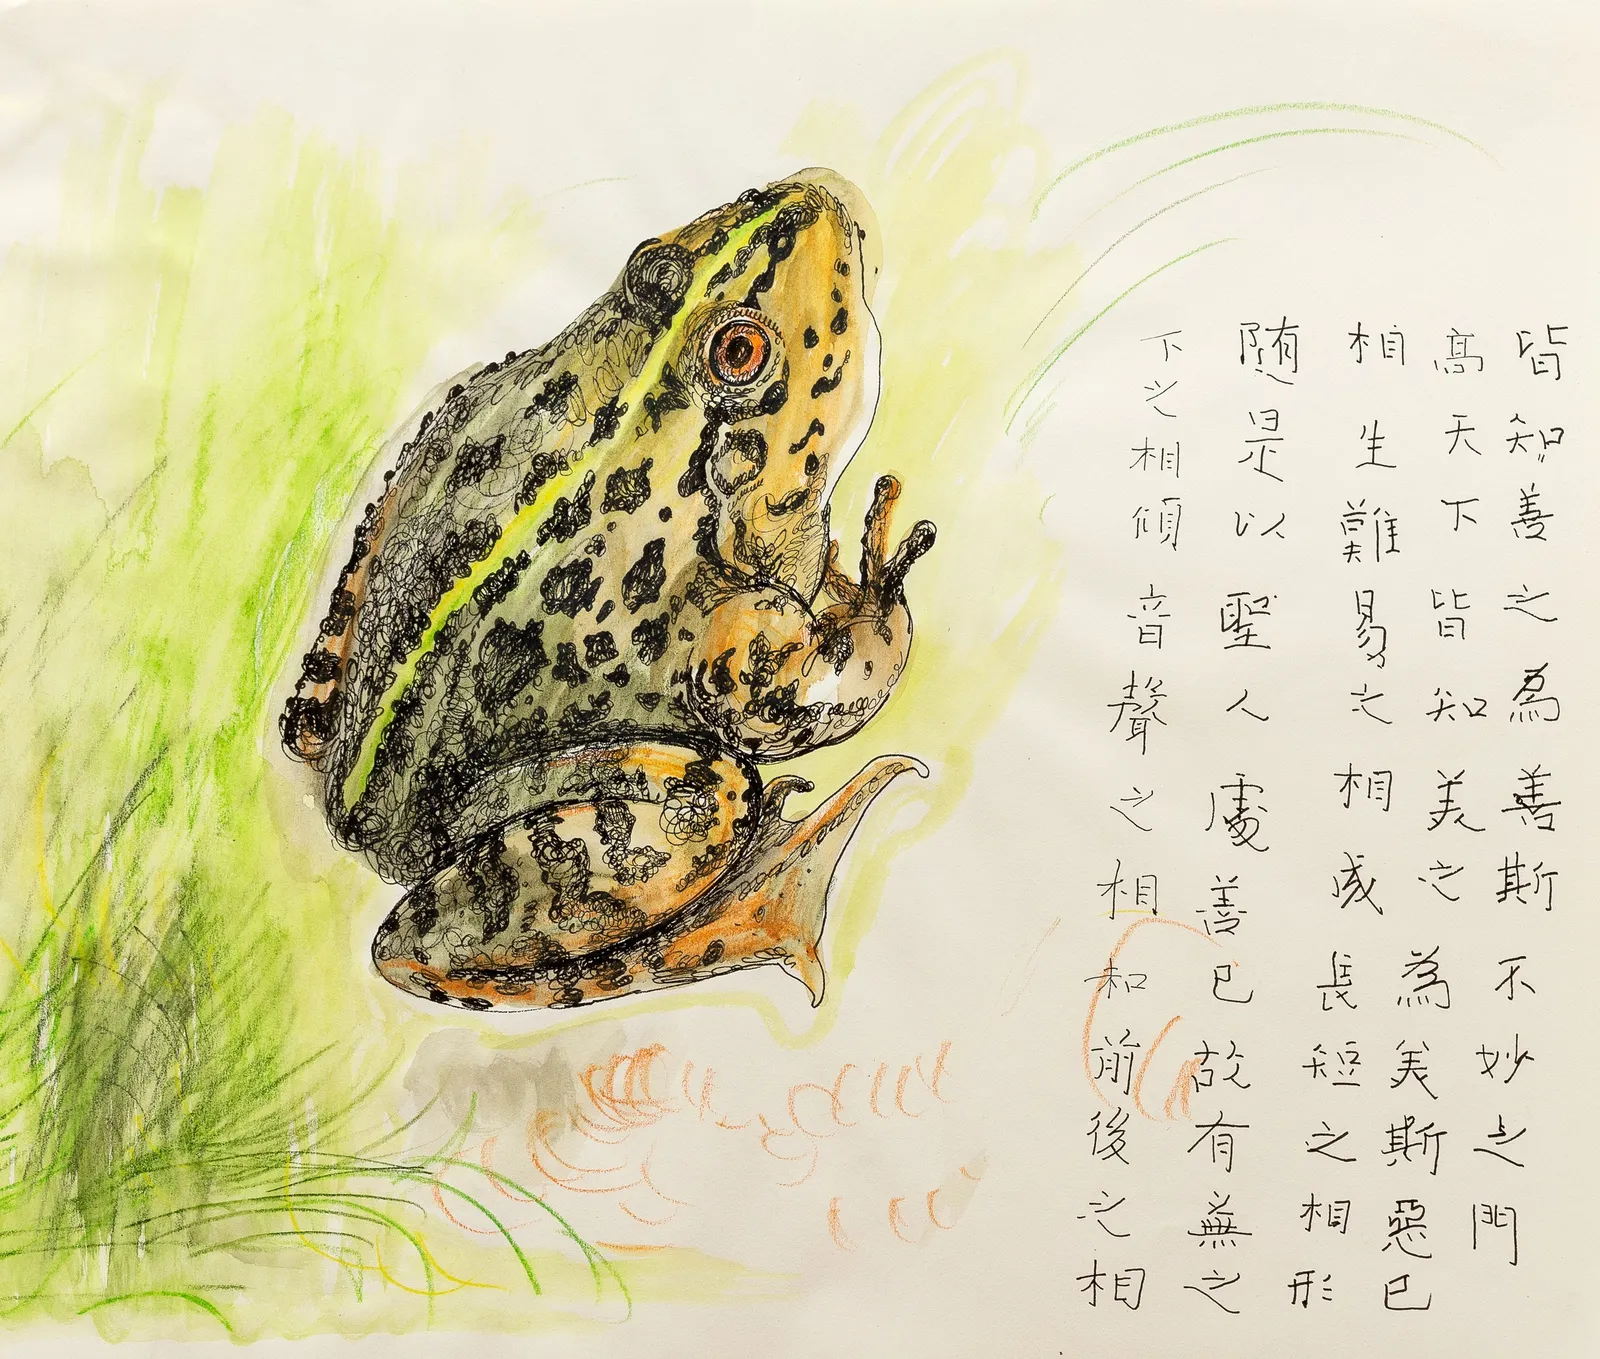 皆知善之為善斯不妙之門
高天下皆知美之為美斯惡已
相生難易之相成長短之相形
随是以聖人處善已故有無之
下之相傾音聲之相和前後之相